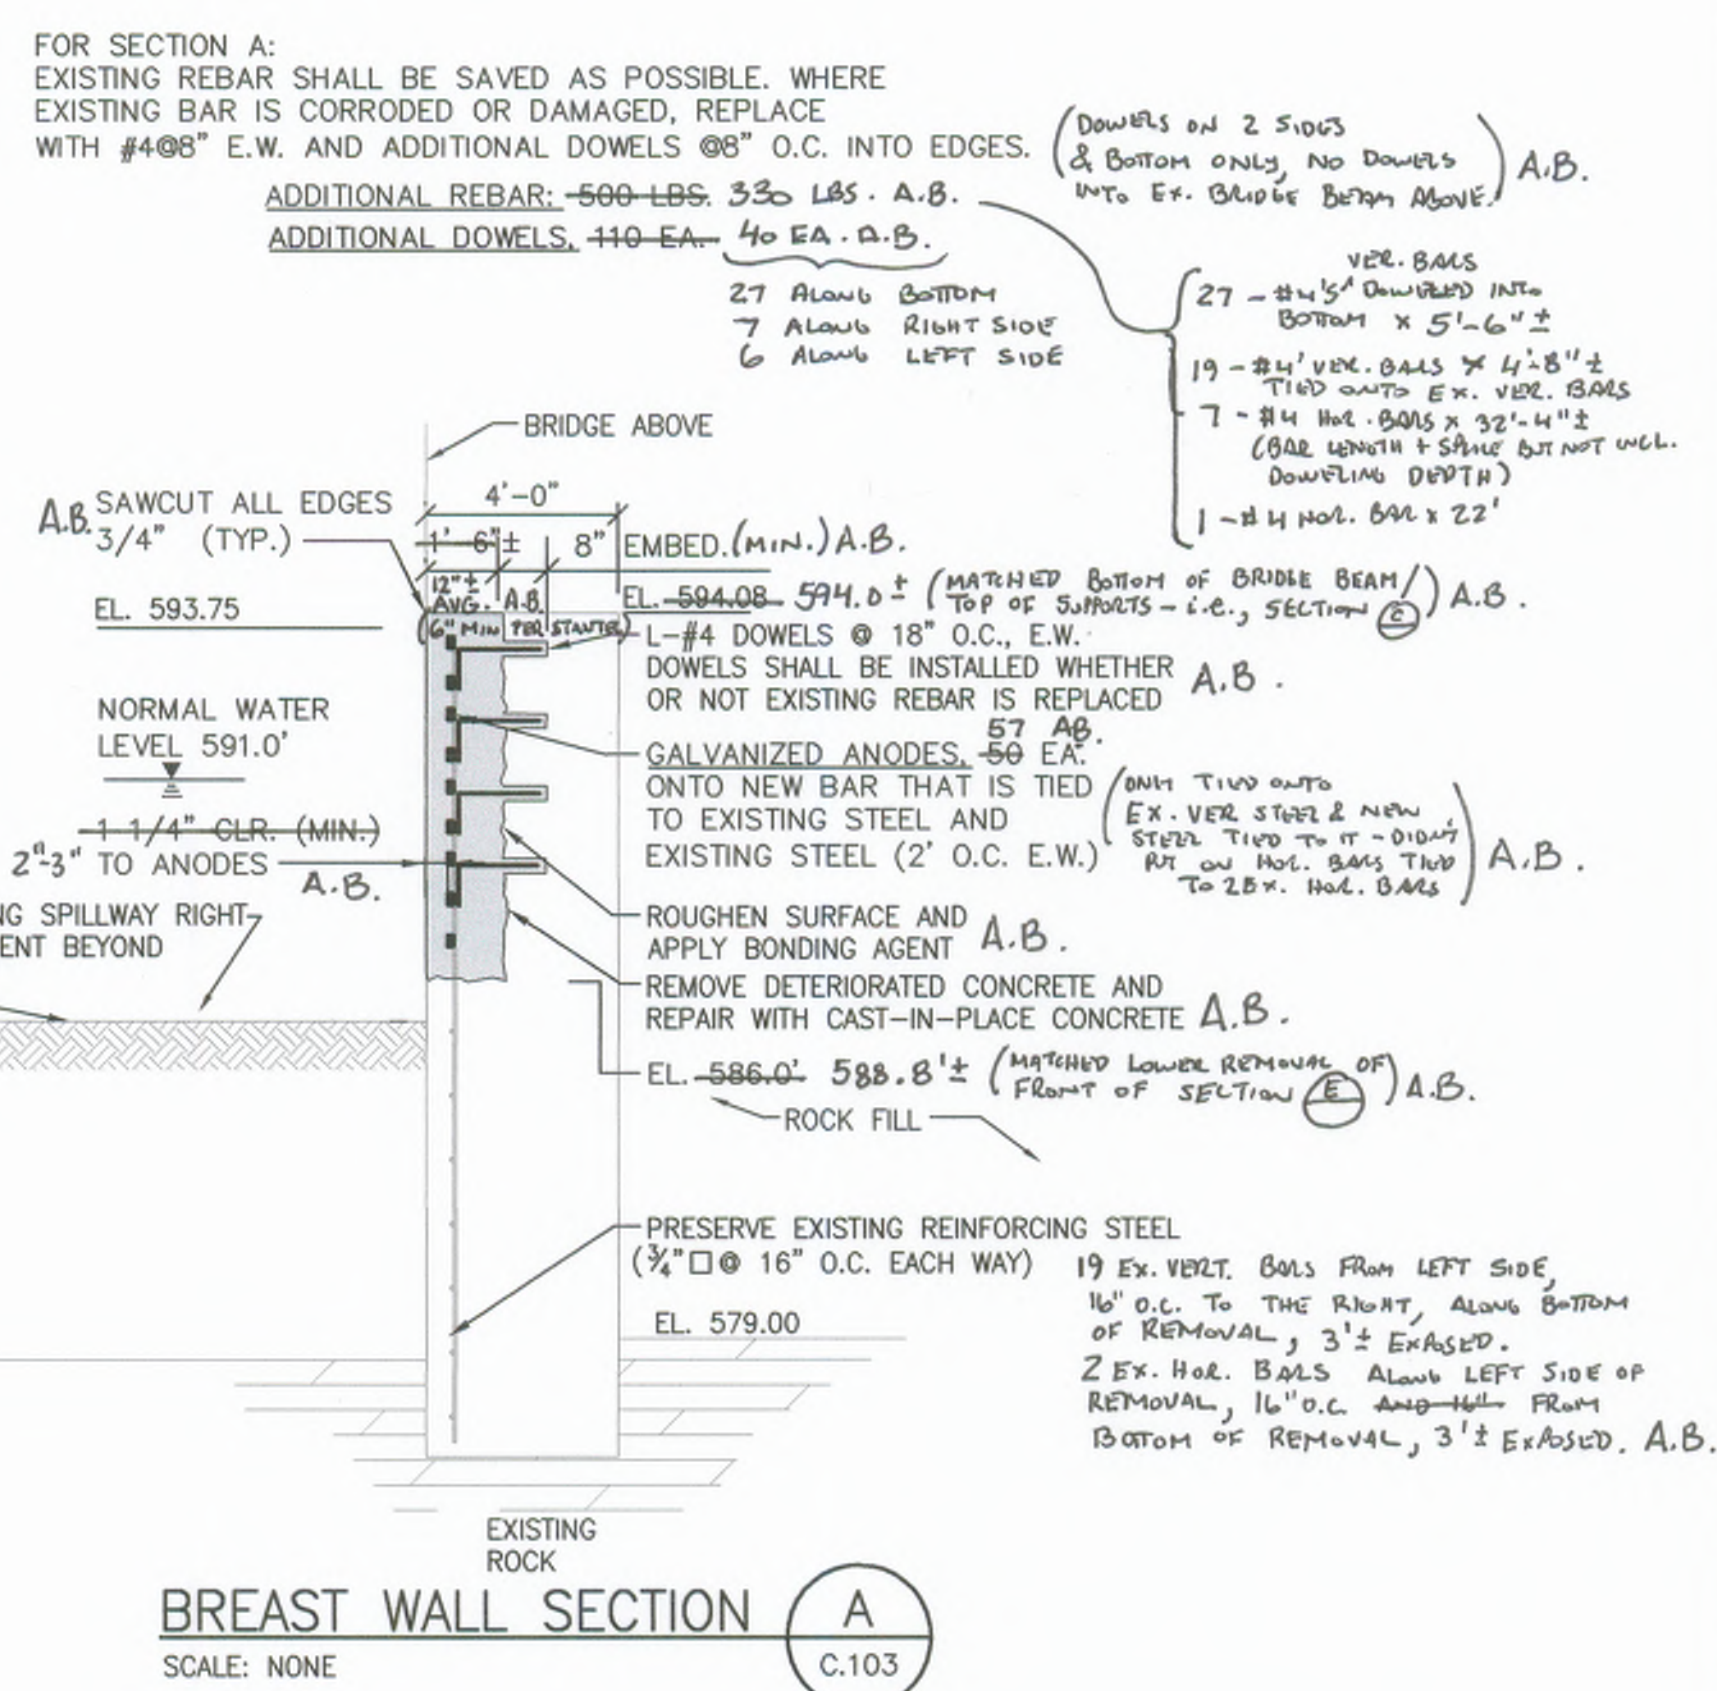 FOR SECTION A:
EXISTING REBAR SHALL BE SAVED AS POSSIBLE. WHERE
EXISTING BAR IS CORRODED OR DAMAGED, REPLACE
WITH #4@8" E.W. AND ADDITIONAL DOWELS @8" O.C. INTO EDGES.
(DOWELS ON 2 SIDES
& BOTTOM ONLY, NO DOWELS
INTO EX. BRIDGE BEAM ABOVE.) A.B.
ADDITIONAL REBAR: 500 LBS. 330 LBS. A.B.
ADDITIONAL DOWELS, 110 EA. 40 EA. A.B.
27 ALONG BOTTOM
7 ALONG RIGHT SIDE
6 ALONG LEFT SIDE
VER. BARS
27 - #4'S ^ DOWELED INTO
BOTTOM x 5'-6" ±
19 - #4' VER. BARS x 4'-8" ±
TIED ONTO EX. VER. BARS
7 - #4 HOR. BARS x 32'-4" ±
(BAR LENGTH + SPLICE BUT NOT INCL.
DOWELING DEPTH)
1 - #4 HOR. BAR x 22'
BRIDGE ABOVE
A.B. SAWCUT ALL EDGES
3/4" (TYP.)
4'-0"
1'-6"± 8" EMBED. (MIN.) A.B.
12" ±
AVG. A.B.
(6" MIN PER STANTEC)
EL. 593.75
EL. 594.08 594.0 ± (MATCHED BOTTOM OF BRIDGE BEAM/
TOP OF SUPPORTS - i.e., SECTION E) A.B.
L-#4 DOWELS @ 18" O.C., E.W.
DOWELS SHALL BE INSTALLED WHETHER
OR NOT EXISTING REBAR IS REPLACED A.B.
NORMAL WATER
LEVEL 591.0'
57 AB.
GALVANIZED ANODES, 50 EA.
ONTO NEW BAR THAT IS TIED
TO EXISTING STEEL AND
EXISTING STEEL (2' O.C. E.W.)
(ONLY TIED ONTO
EX. VER STEEL & NEW
STEEL TIED TO IT - DIDN'T
PUT ON HOR. BARS TIED
TO 2 EX. HOR. BARS) A.B.
1 1/4" CLR. (MIN.)
2"-3" TO ANODES
A.B.
NG SPILLWAY RIGHT
ENT BEYOND
ROUGHEN SURFACE AND
APPLY BONDING AGENT A.B.
REMOVE DETERIORATED CONCRETE AND
REPAIR WITH CAST-IN-PLACE CONCRETE A.B.
EL. 586.0' 588.8'± (MATCHED LOWER REMOVAL OF
FRONT OF SECTION E) A.B.
ROCK FILL
PRESERVE EXISTING REINFORCING STEEL
(¾"□@ 16" O.C. EACH WAY)
19 EX. VERT. BARS FROM LEFT SIDE,
16" O.C. TO THE RIGHT, ALONG BOTTOM
OF REMOVAL, 3'± EXPOSED.
2 EX. HOR. BARS ALONG LEFT SIDE OF
REMOVAL, 16" O.C. AND 16" FROM
BOTTOM OF REMOVAL, 3'± EXPOSED. A.B.
EL. 579.00
EXISTING
ROCK
BREAST WALL SECTION
SCALE: NONE
A
C.103